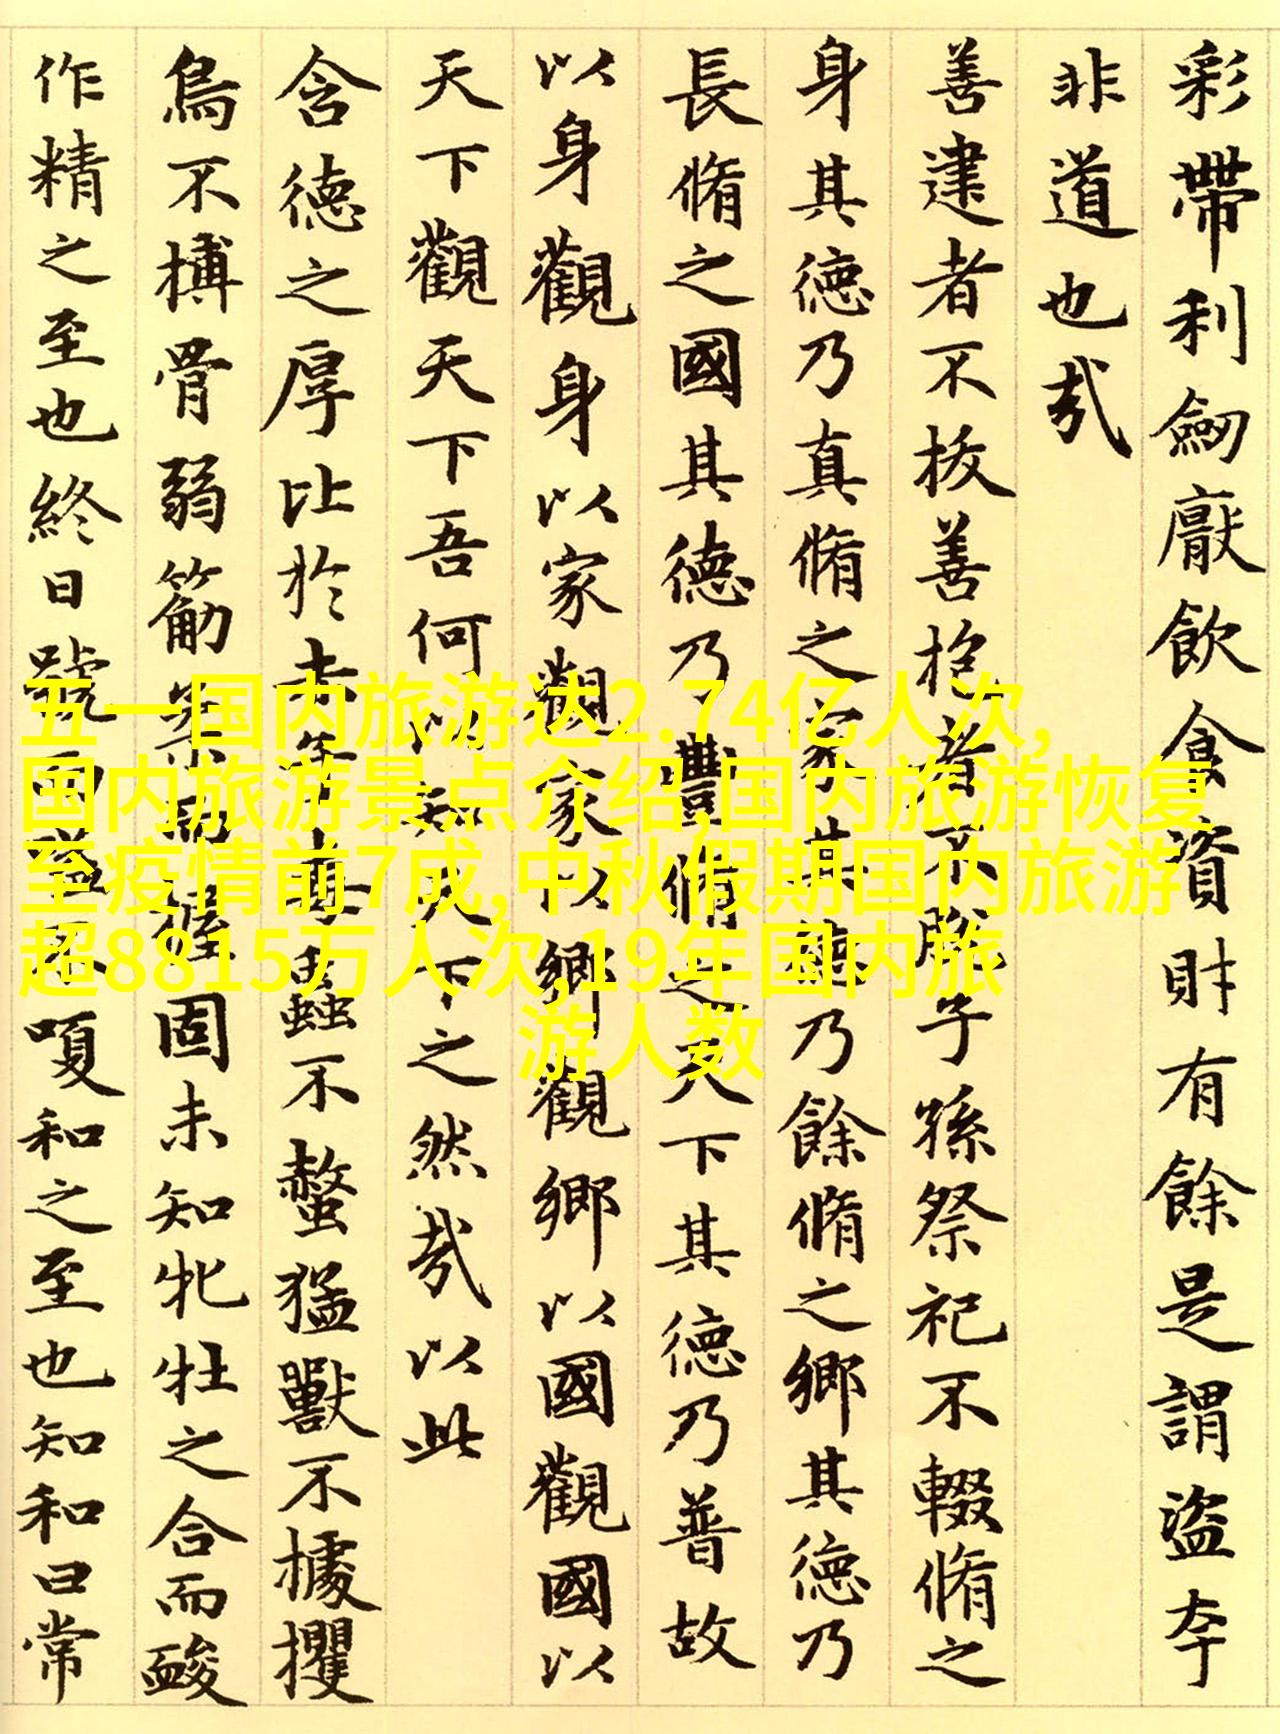 彩帶利劒厭飲食資財有餘是謂盜夸
非道也哉
善建者不拔善抱者不脫子孫祭祀不輟脩之
身其德乃真脩之家其德乃餘脩之鄉其德乃
長脩之國其德乃豐脩之天下其德乃普故
以身觀身以家觀家以鄉觀鄉以國觀國以
天下觀天下吾何以知天下之然哉以此
含德之厚比於赤子毒蟲不螫猛獸不據攫
鳥不搏骨弱筋柔而握固未知牝牡之合而䘒
作精之至也終日號而嗌不嗄和之至也知和曰常
五一国内旅游达2.74亿人次,
国内旅游景点介绍,国内旅游恢复
至疫情前7成,中秋假期国内旅游
超8815万人次,19年国内旅
游人数